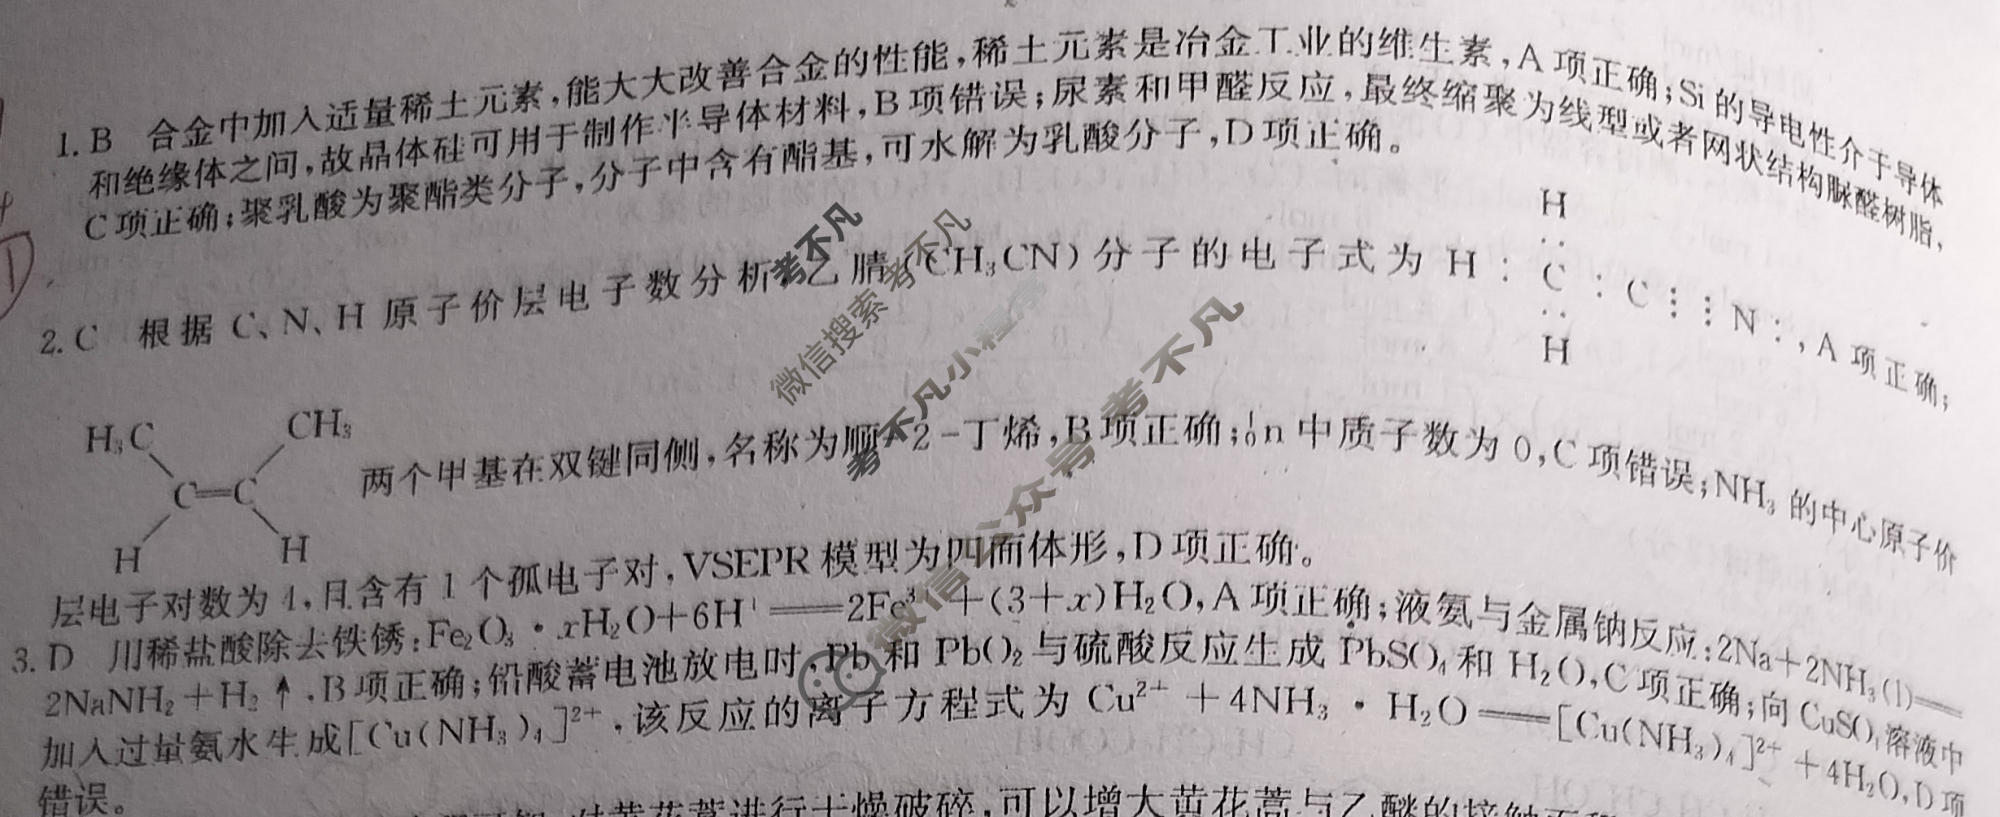 1. B 合金中加入适量稀土元素,能大大改善合金的性能,稀土元素是冶金工业的维生素,A项正确;Si的导电性介于导体
和绝缘体之间,故晶体硅可用于制作半导体材料,B项错误;尿素和甲醛反应,最终缩聚为线型或者网状结构脲醛树脂,
C项正确;聚乳酸为聚酯类分子,分子中含有酯基,可水解为乳酸分子,D项正确。
H
2. C 根据 C、N、H 原子价层电子数分析,乙腈(CH₃CN)分子的电子式为 H:C:C⋮⋮N:,A项正确;
H
H₃C CH₃
C=C 两个甲基在双键同侧,名称为顺-2-丁烯,B项正确;¹₀n中质子数为0,C项错误;NH₃的中心原子价
H H
层电子对数为4,且含有1个孤电子对,VSEPR模型为四面体形,D项正确。
3. D 用稀盐酸除去铁锈:Fe₂O₃·xH₂O+6H⁺══2Fe³⁺+(3+x)H₂O,A项正确;液氨与金属钠反应:2Na+2NH₃(l)══
2NaNH₂+H₂↑,B项正确;铅酸蓄电池放电时,Pb和PbO₂与硫酸反应生成PbSO₄和H₂O,C项正确;向CuSO₄溶液中
加入过量氨水生成[Cu(NH₃)₄]²⁺,该反应的离子方程式为Cu²⁺+4NH₃·H₂O══[Cu(NH₃)₄]²⁺+4H₂O,D项
错误。
进行干燥破碎,可以增大黄花蒿与乙醚的接触面积
考不凡
微信搜索 考不凡
考不凡小程序
微信公众号 考不凡